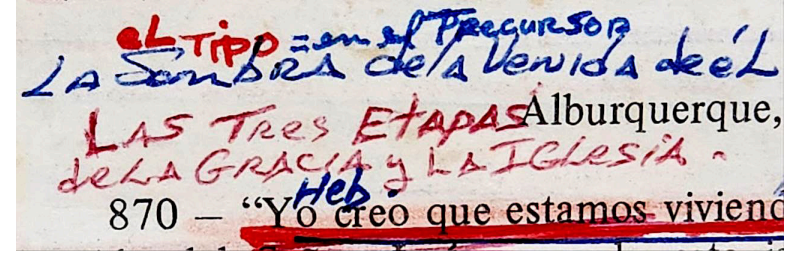 eL Tipo = en el Precursor
LA SombRA de la Venida de éL
LAS Tres EtApAS Alburquerque,
de LA GRACIA y LA IGlesiA.
Heb.
870 – “Yo creo que estamos viviend